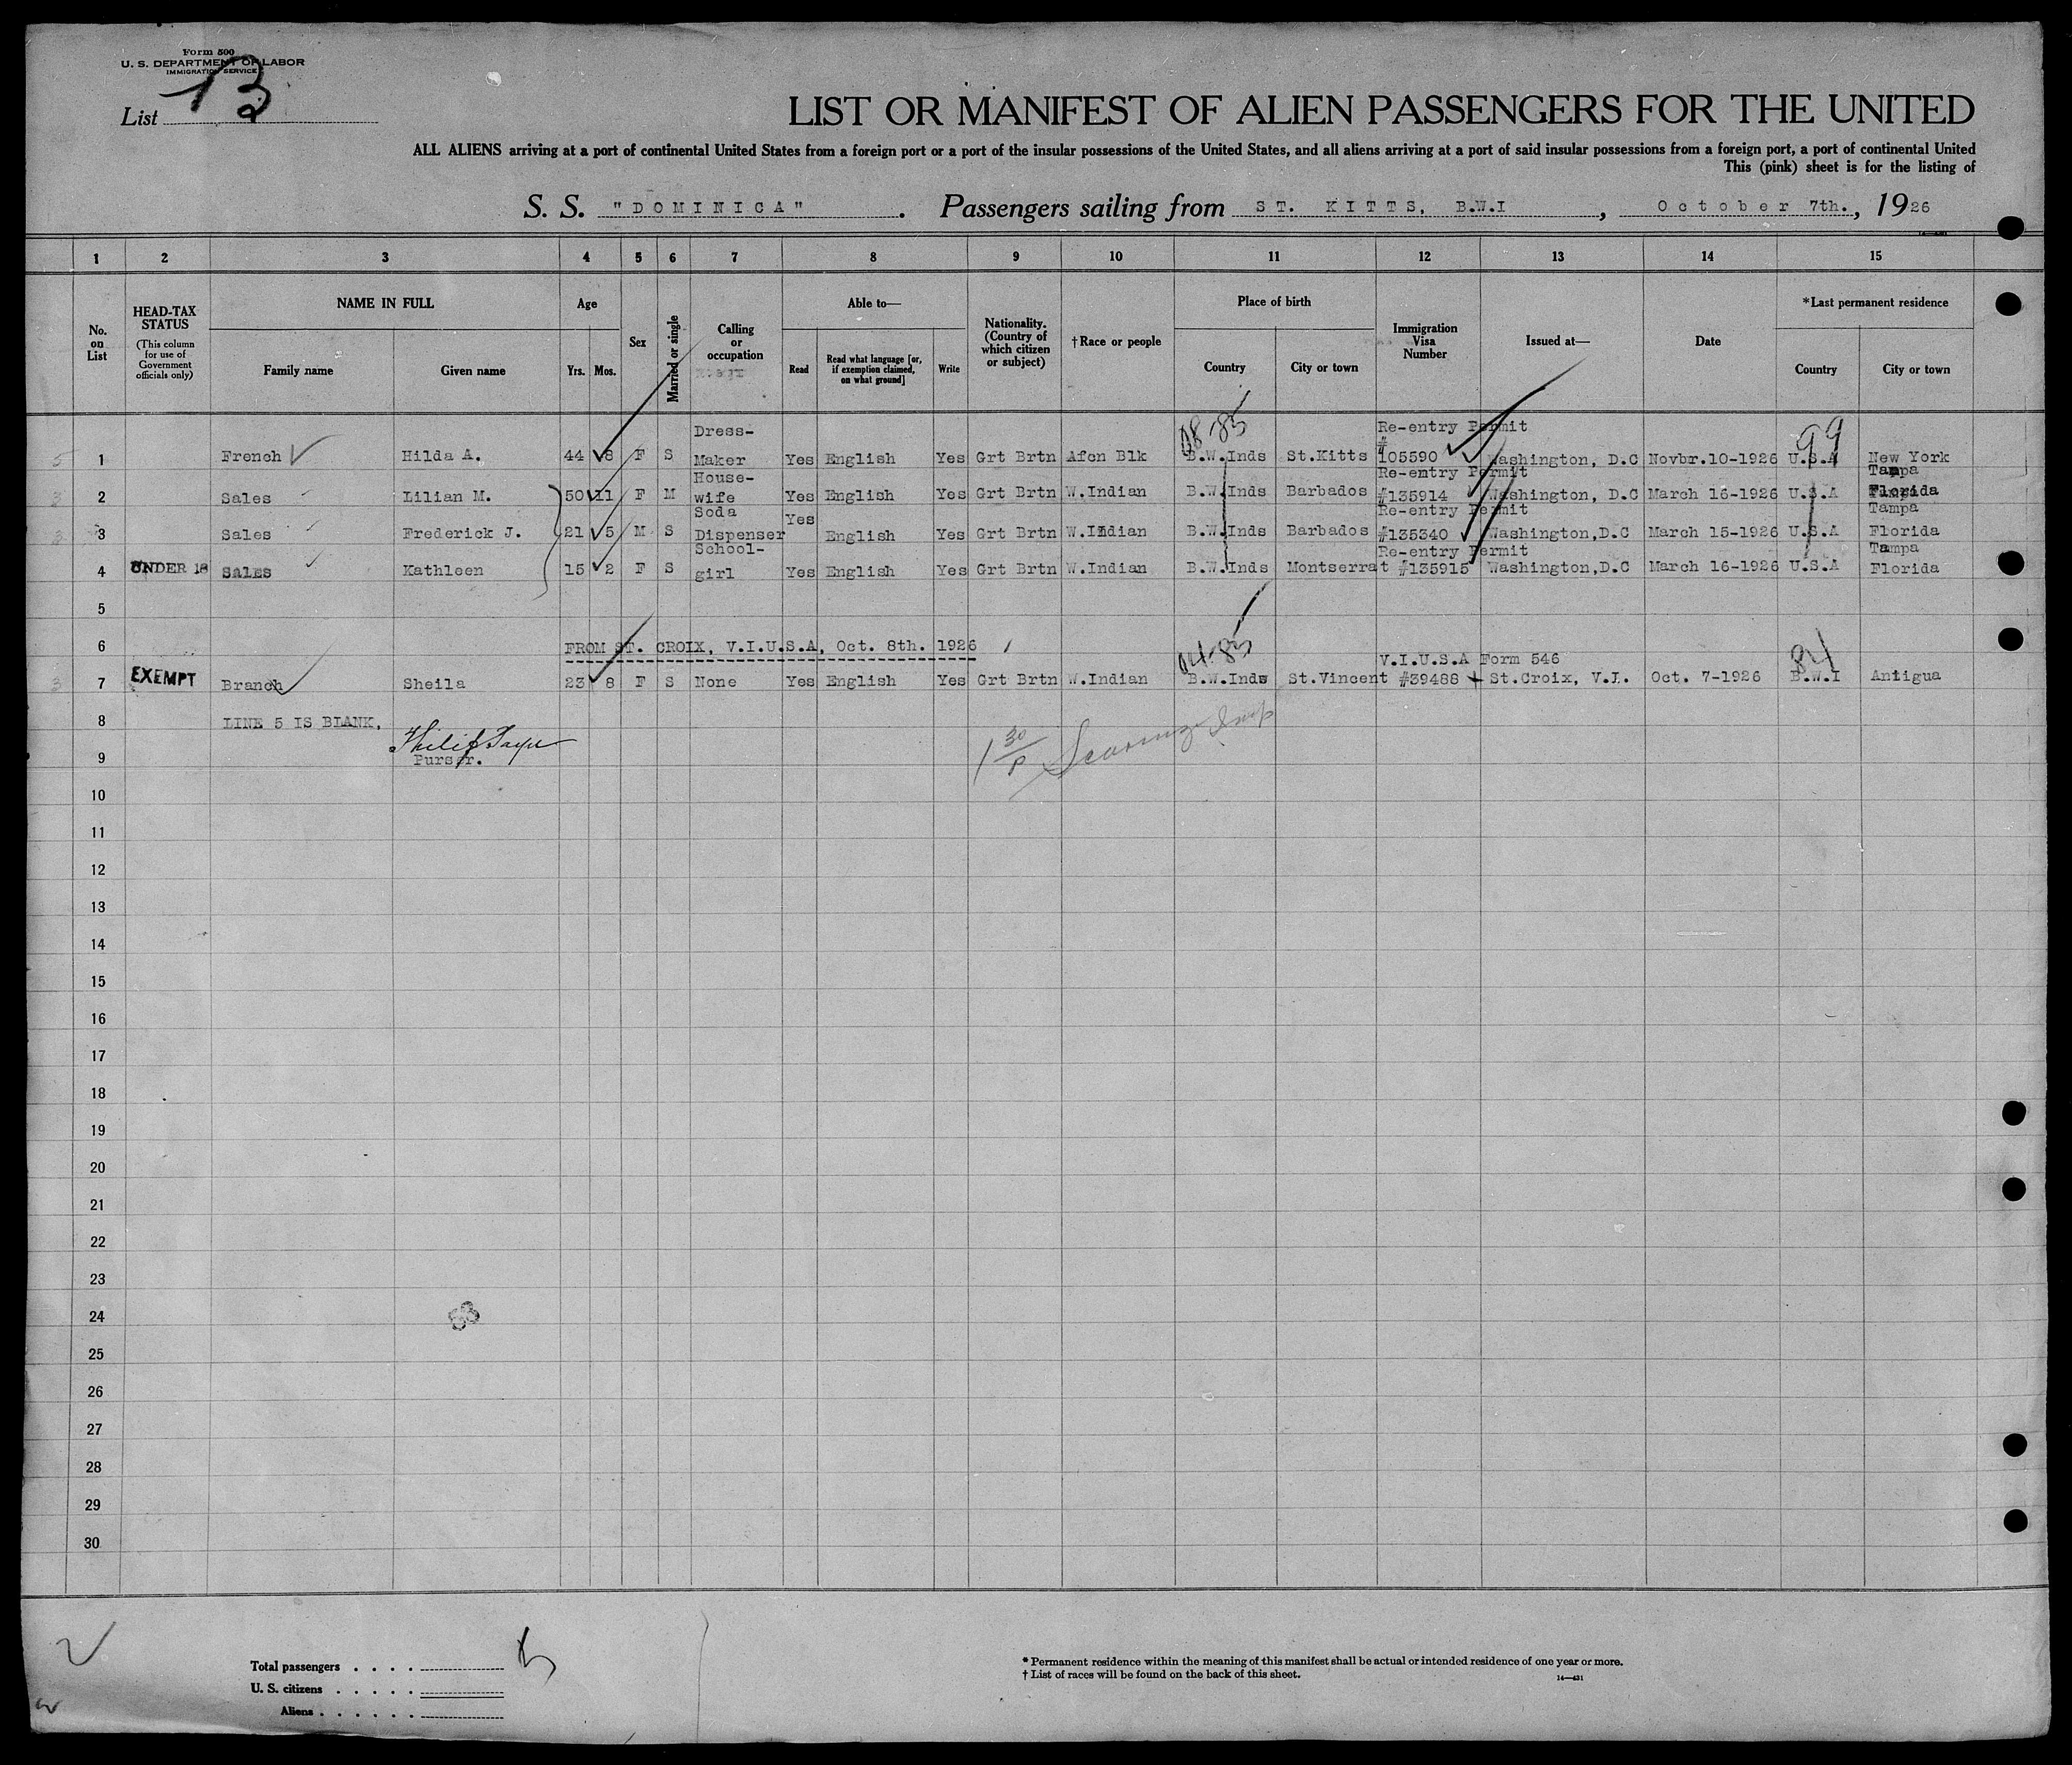 Form 500
U. S. DEPARTMENT OF LABOR
IMMIGRATION SERVICE
List 13
LIST OR MANIFEST OF ALIEN PASSENGERS FOR THE UNITED
ALL ALIENS arriving at a port of continental United States from a foreign port or a port of the insular possessions of the United States, and all aliens arriving at a port of said insular possessions from a foreign port, a port of continental United
This (pink) sheet is for the listing of
S. S. "DOMINICA". Passengers sailing from ST. KITTS, B.W.I, October 7th., 1926
1 2 3 4 5 6 7 8 9 10 11 12 13 14 15
No. on List
HEAD-TAX STATUS (This column for use of Government officials only)
NAME IN FULL
Family name Given name
Age
Yrs. Mos.
Sex
Married or single
Calling or occupation
Able to—
Read Read what language [or, if exemption claimed, on what ground] Write
Nationality. (Country of which citizen or subject)
†Race or people
Place of birth
Country City or town
Immigration Visa Number
Issued at—
Date
*Last permanent residence
Country City or town
08-85 99
1 French Hilda A. 44 8 F S Dress-Maker Yes English Yes Grt Brtn Afcn Blk B.W.Inds St.Kitts Re-entry Permit # 105590 Washington, D.C Novbr.10-1926 U.S.A New York
2 Sales Lilian M. 50 11 F M House-wife Yes English Yes Grt Brtn W.Indian B.W.Inds Barbados Re-entry Permit #135914 Washington, D.C March 16-1926 U.S.A Tampa Florida
3 Sales Frederick J. 21 5 M S Soda Dispenser Yes English Yes Grt Brtn W.Indian B.W.Inds Barbados Re-entry Permit #135340 Washington,D.C March 15-1926 U.S.A Tampa Florida
4 UNDER 18 SALES Kathleen 15 2 F S School-girl Yes English Yes Grt Brtn W.Indian B.W.Inds Montserrat Re-entry Permit #135915 Washington,D.C March 16-1926 U.S.A Tampa Florida
5
6 FROM ST. CROIX, V.I.U.S.A, Oct. 8th. 1926
04-85 84
7 EXEMPT Branch Sheila 23 8 F S None Yes English Yes Grt Brtn W.Indian B.W.Inds St.Vincent V.I.U.S.A Form 546 #39488 St.Croix, V.I. Oct. 7-1926 B.W.I Antigua
8 LINE 5 IS BLANK.
9 Purser.
10
11
12
13
14
15
16
17
18
19
20
21
22
23
24
25
26
27
28
29
30
Total passengers . . . . 5
U. S. citizens . . . . .
Aliens . . . . . .
* Permanent residence within the meaning of this manifest shall be actual or intended residence of one year or more.
† List of races will be found on the back of this sheet.
14—431